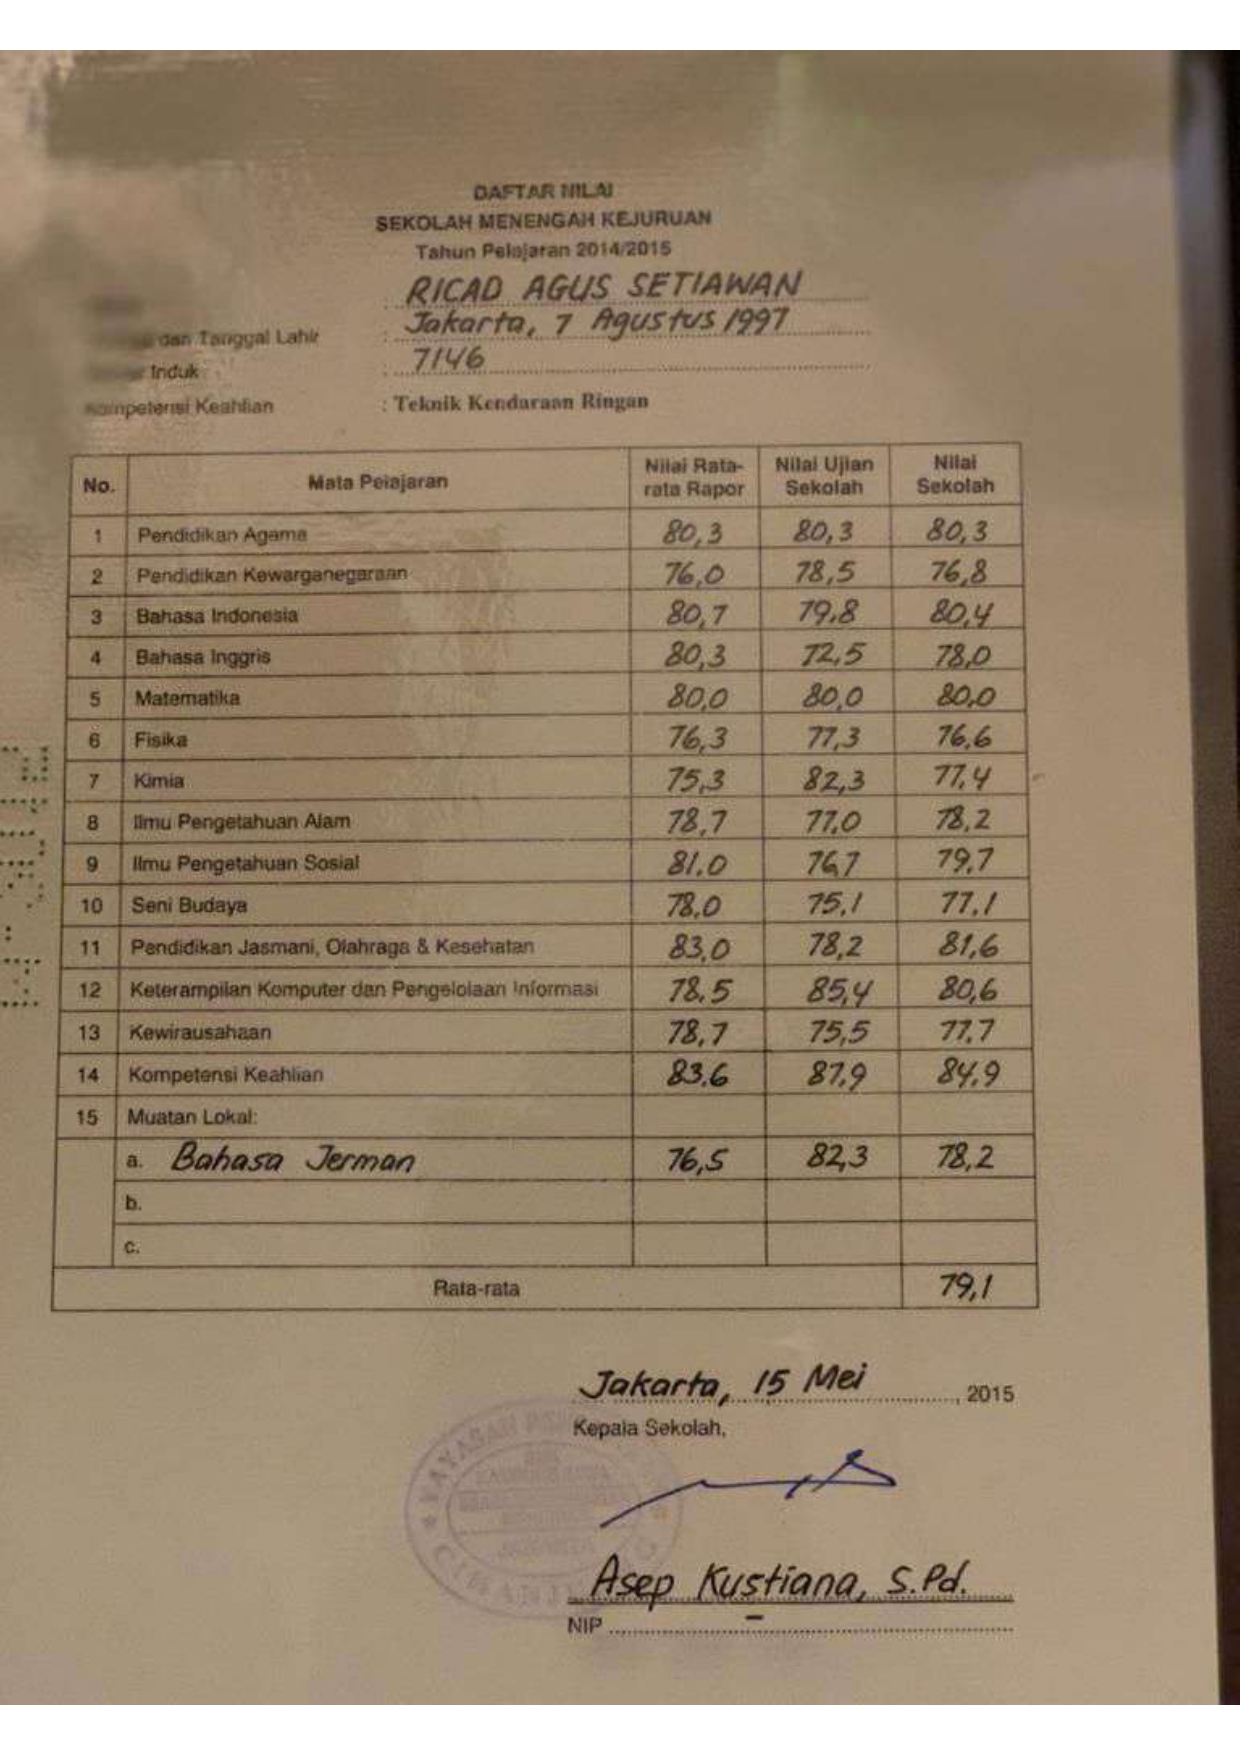 DAFTAR NILAI
SEKOLAH MENENGAH KEJURUAN
Tahun Pelajaran 2014/2015
: RICAD AGUS SETIAWAN
dan Tanggal Lahir : Jakarta, 7 Agustus 1997
Induk : 7146
Kompetensi Keahlian : Teknik Kendaraan Ringan
No. Mata Pelajaran Nilai Rata-rata Rapor Nilai Ujian Sekolah Nilai Sekolah
1 Pendidikan Agama 80,3 80,3 80,3
2 Pendidikan Kewarganegaraan 76,0 78,5 76,8
3 Bahasa Indonesia 80,7 79,8 80,4
4 Bahasa Inggris 80,3 72,5 78,0
5 Matematika 80,0 80,0 80,0
6 Fisika 76,3 77,3 76,6
7 Kimia 75,3 82,3 77,4
8 Ilmu Pengetahuan Alam 78,7 77,0 78,2
9 Ilmu Pengetahuan Sosial 81,0 76,7 79,7
10 Seni Budaya 78,0 75,1 77,1
11 Pendidikan Jasmani, Olahraga & Kesehatan 83,0 78,2 81,6
12 Keterampilan Komputer dan Pengelolaan Informasi 78,5 85,4 80,6
13 Kewirausahaan 78,7 75,5 77,7
14 Kompetensi Keahlian 83,6 87,9 84,9
15 Muatan Lokal:
a. Bahasa Jerman 76,5 82,3 78,2
b.
c.
Rata-rata 79,1
Jakarta, 15 Mei, 2015
Kepala Sekolah,
YAYASAN
Asep Kustiana, S.Pd.
NIP –